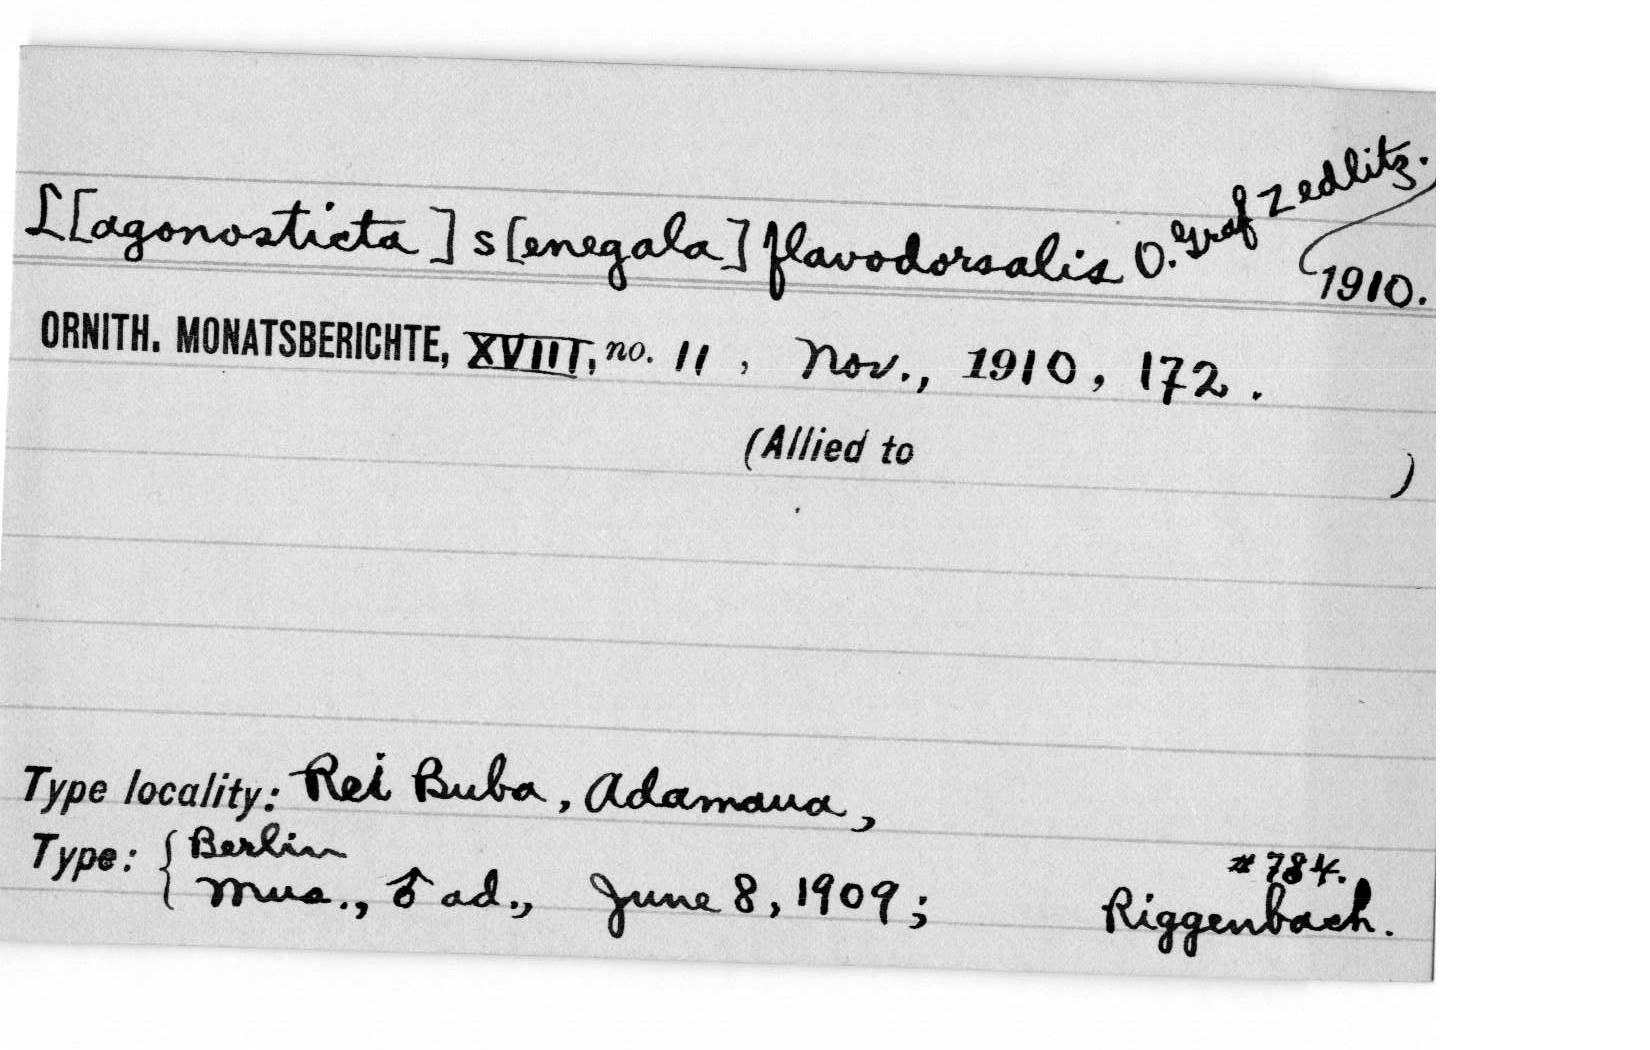 L[agonosticta] s[enegala] flavodorsalis O. Graf Zedlitz.
1910.
ORNITH. MONATSBERICHTE, XVIII, no. 11, Nov., 1910, 172.
(Allied to )
Type locality: Rei Buba, Adamaua,
Type: { Berlin
Mus., ♂ ad., June 8, 1909; #784.
Riggenbach.